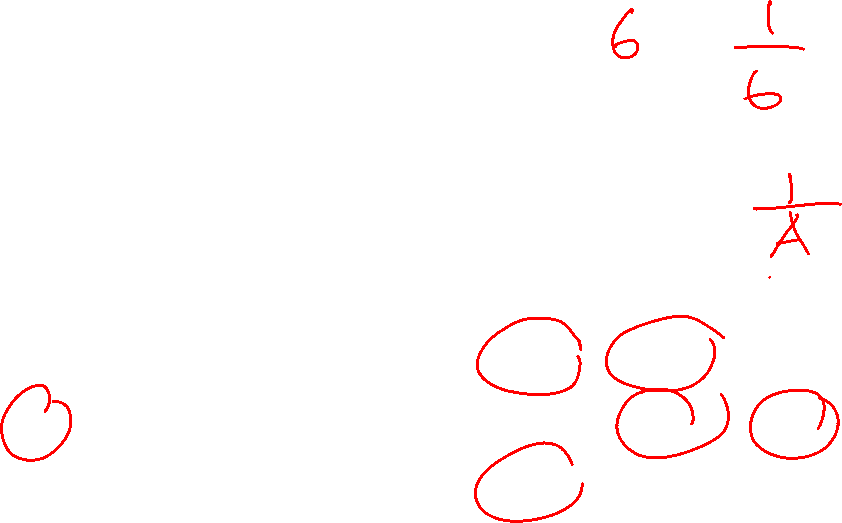 6 1/6
1/A